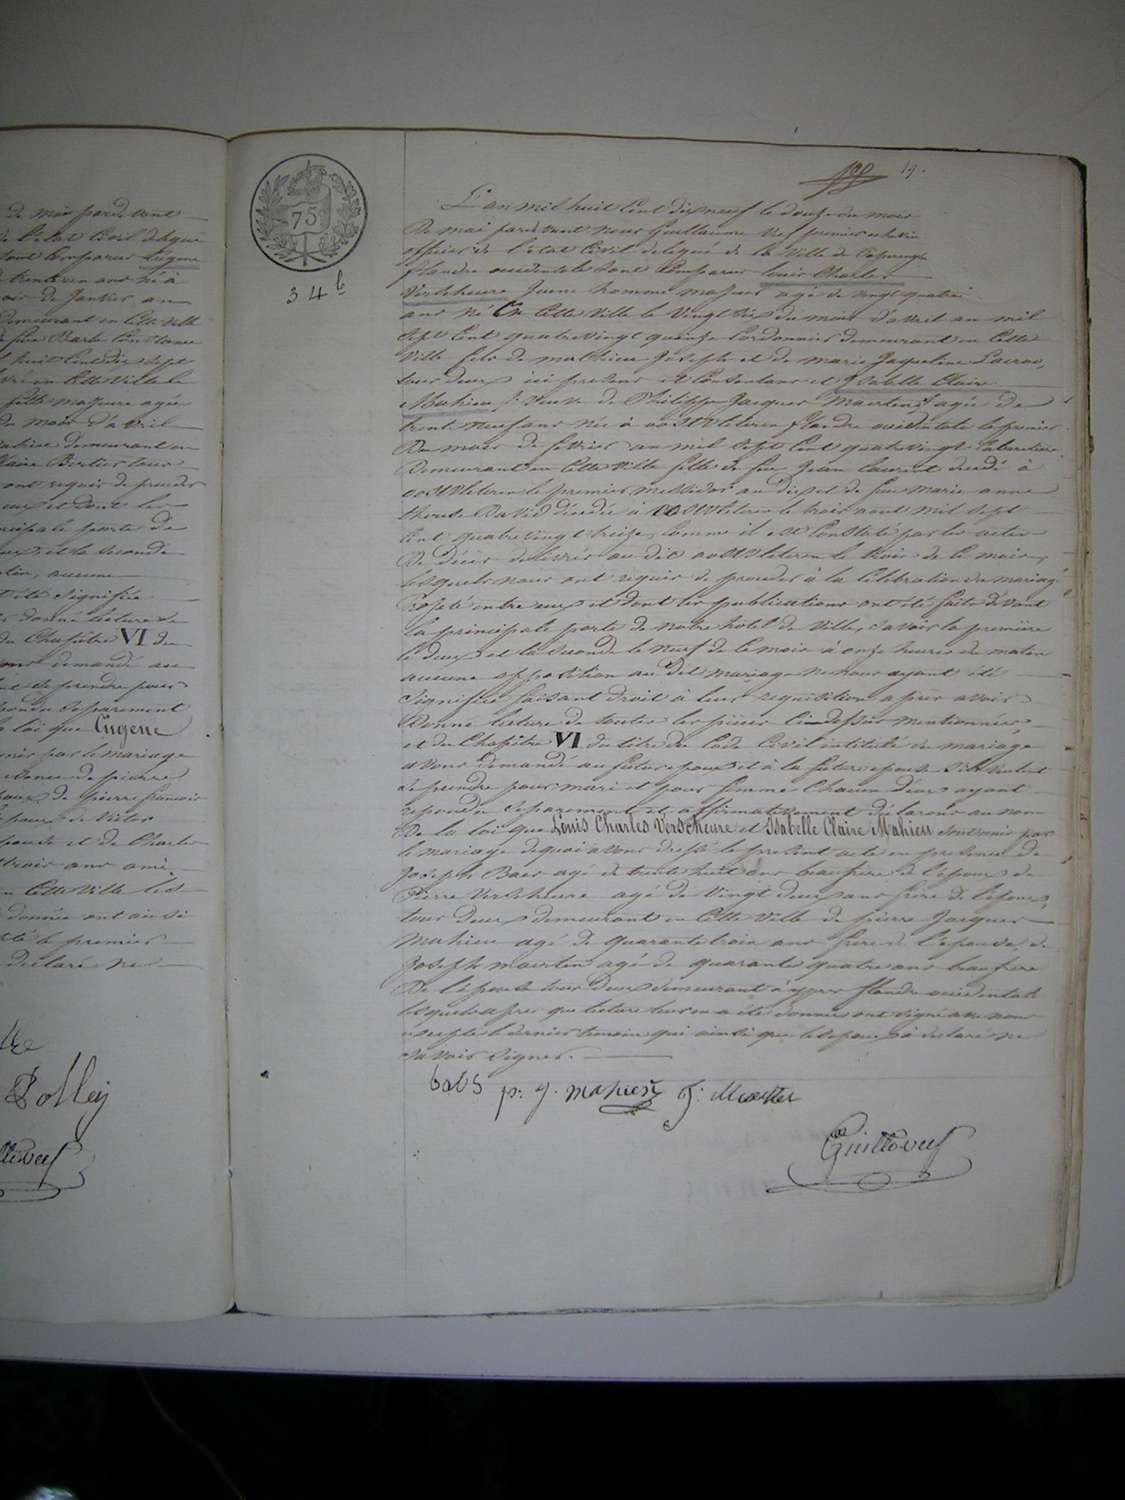 de mai pardevant
de l'etat Civil delegué
sont Comparus Eugene
de trente un ans né à
mois de Janvier an
demeurant en Cette Ville
de feue Barbe Constance
huit Cent dix sept
en Cette Ville le
fille majeure agée
du mois d'avril
demeurant en
Claire Bertier tous
ont requis de proceder
eux et dont les
principale porte de
et la seconde
matin, aucune
été signifiée
donné lecture de
du Chapitre VI du
demandé au
de prendre pour
repondu separement
la loi que Eugene
unis par le mariage
presence de pierre
epoux de pierre francois
l'epoux de Victor
epouse et de Charles
trois ans ami
en Cette Ville les
donnée ont ainsi
excepté le premier
declaré ne
Polley
Guille Veef
75c
34 b
19.
L'an mil huit Cent dix neuf le douze du mois
De mai pardevant nous Guillaume Veef premier echevin
officier de l'etat Civil delegué de la Ville de Poperinghe
flandre occidentale sont Comparus Louis Charles
Verscheure Jeune homme majeur agé de vingt quatre
ans né En Cette Ville le Vingt six du mois d'avril an mil
sept Cent quatre vingt quinze Cordonnier demeurant en Cette
Ville fils de mathieu Joseph et de marie Jaqueline Lacroo,
tous deux ici presens et Consentans et Isabelle Claire
Mahieu Veuve de Philippe Jacques Maerten agée de
trente neuf ans née à oostvleteren flandre occidentale le premier
Du mois de fevrier an mil sept Cent quatre vingt Cabaretiere
Demeurant en Cette Ville fille de feu Jean Laurent decedé à
oostvleteren le premier messidor an dix et de feue marie anne
therese David décédée à oostvleteren le trois aout mil sept
Cent quatre vingt treize, Comme il est Constaté par les actes
De décès delivrés au dit oostvleteren le trois de Ce mois,
lesquels nous ont requis de proceder à la Celebration du mariage
Projeté entre eux et dont les publications ont été faites devant
la principale porte de notre hotel de Ville, savoir la premiere
le deux et la seconde le neuf de Ce mois à onze heures du matin
aucune opposition au dit mariage ne nous ayant été
signifiée faisant droit à leur requisition apres avoir
Donné lecture de toutes les pieces Ci-dessus mentionnées
et du Chapitre VI du titre du Code Civil intitulé du mariage
avons demandé au futur epoux et à la future epouse s'ils veulent
se prendre pour mari et pour femme Chacun d'eux ayant
repondu separement et affirmativement déclarons au nom
De la loi que Louis Charles Verscheure et Isabelle Claire Mahieu sont unis par
le mariage de quoi avons dressé le present acte en presence de
Joseph Baes agé de trente huit ans beau frere de l'epoux de
Pierre Verscheure agé de Vingt deux ans frere de l'epoux,
tous deux demeurant en Cette Ville de pierre Jacques
Mahieu agé de quarante trois ans frere de l'epouse, de
Joseph maerten agé de quarante quatre ans beau frere
De l'epouse tous deux demeurant à ypres flandre occidentale
lesquels apres que lecture leur en a été donnée ont signé avec nous
excepté le dernier temoin qui ainsi que les epoux a declaré ne
savoir signer.
baes p: J. Mahieu J: Maerten
Guille Veef